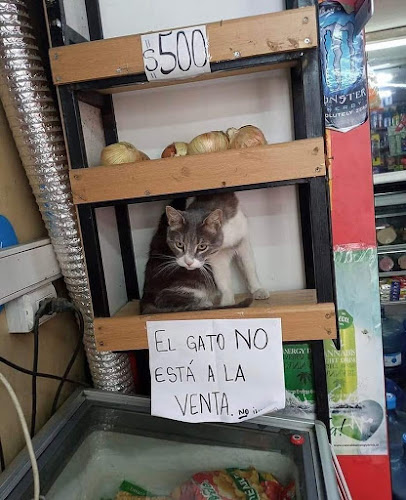 $500
EL GATO NO
ESTÁ A LA
VENTA. NO
MONSTER
ENERGY